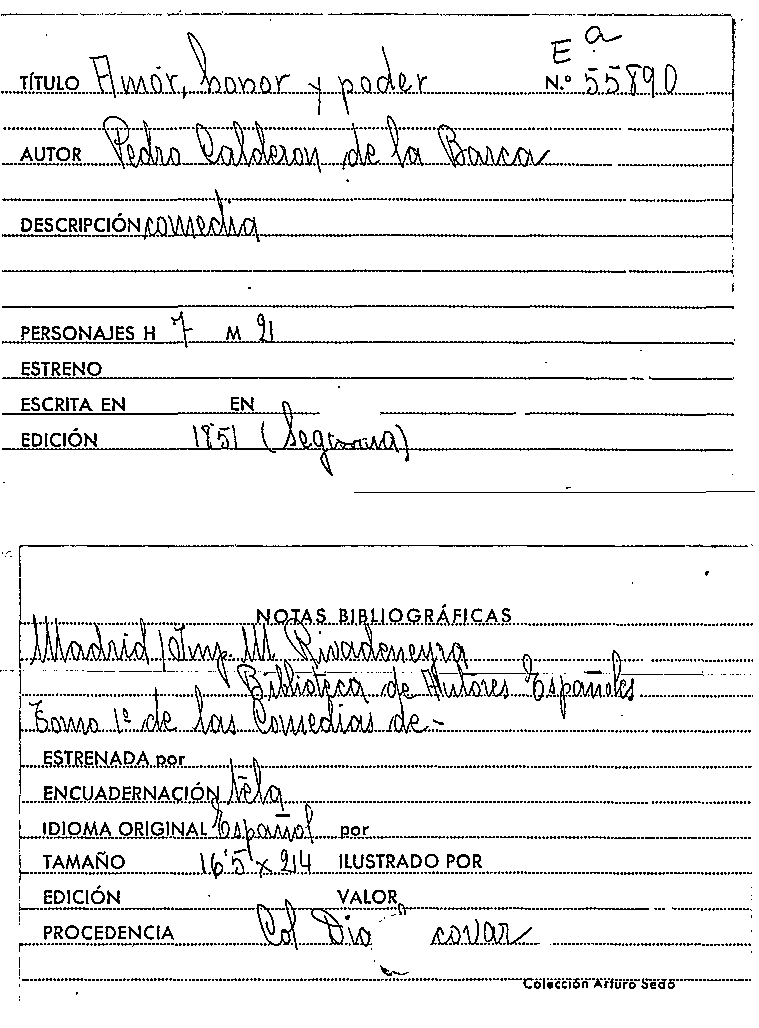 Eª
TÍTULO Amor, honor y poder N.º 55890
AUTOR Pedro Calderon de la Barca
DESCRIPCIÓN comedia
PERSONAJES H 7 M 21
ESTRENO
ESCRITA EN EN
EDICIÓN 1851 (Segunda)
NOTAS BIBLIOGRÁFICAS
Madrid / Imp. M. Rivadeneyra
Biblioteca de Autores Españoles
Tomo 1º de las Comedias de.-
ESTRENADA por
ENCUADERNACIÓN tela
IDIOMA ORIGINAL Español por
TAMAÑO 16'5 x 24 ILUSTRADO POR
EDICIÓN VALOR
PROCEDENCIA Col
Colección Arturo Sedó